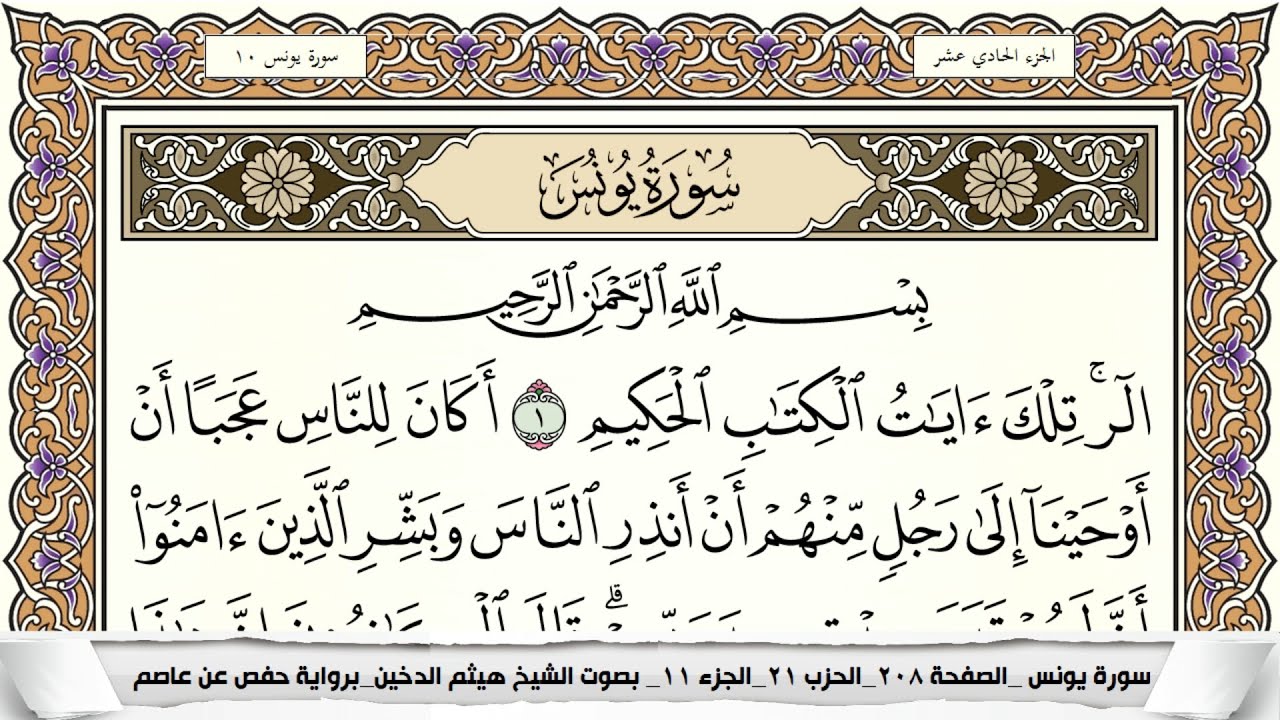 الجزء الحادي عشر
سورة يونس ١٠
سُورَةُ يُونُسَ
بِسْمِ ٱللَّهِ ٱلرَّحْمَٰنِ ٱلرَّحِيمِ
الٓرۚ تِلْكَ ءَايَٰتُ ٱلْكِتَٰبِ ٱلْحَكِيمِ ١ أَكَانَ لِلنَّاسِ عَجَبًا أَنْ
أَوْحَيْنَآ إِلَىٰ رَجُلٍ مِّنْهُمْ أَنْ أَنذِرِ ٱلنَّاسَ وَبَشِّرِ ٱلَّذِينَ ءَامَنُوٓا۟
سورة يونس _الصفحة ٢٠٨_الحزب ٢١_الجزء ١١_ بصوت الشيخ هيثم الدخين_برواية حفص عن عاصم